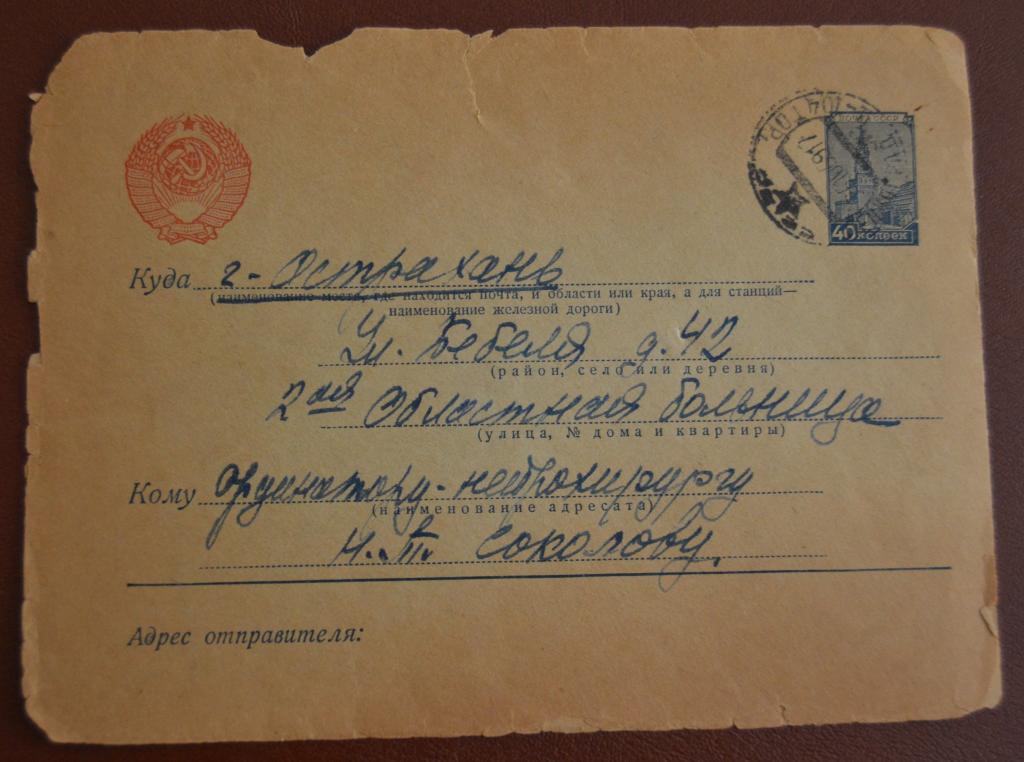 ПОЧТА СССР
40 КОПЕЕК
Куда г. Острахань
(наименование места, где находится почта, и области или края, а для станций—
наименование железной дороги)
Ул. Бебеля д. 42
(район, село или деревня)
2ая Областная больница
(улица, № дома и квартиры)
Кому Ординатору-нейрохирургу
(наименование адресата)
Н. П. Соколову.
Адрес отправителя: